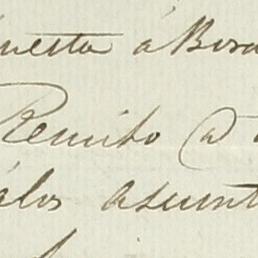 uesta á Bora
Remito a
álos asunt